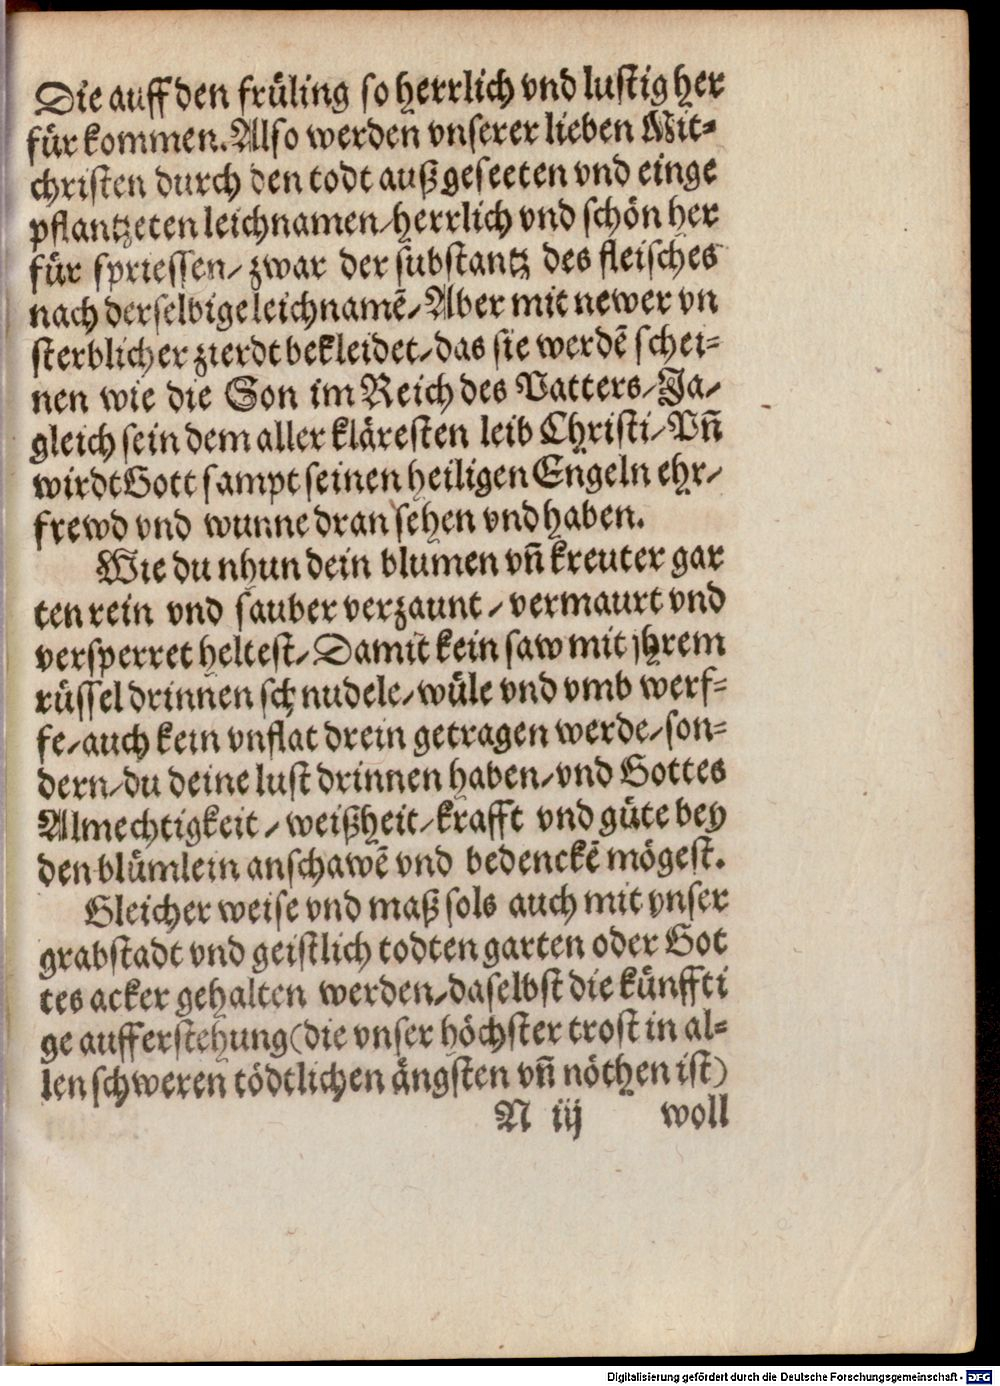 Die auff den früling so herrlich vnd lustig her
für kommen. Also werden vnserer lieben Mit-
christen durch den todt außgeseeten vnd einge
pflantzeten leichnamen/ herrlich vnd schön her
für spriessen/ zwar der substantz des fleisches
nach derselbige leichnamē/ Aber mit newer vn
sterblicher zierdt bekleidet/ das sie werdē schei-
nen wie die Son im Reich des Vatters/ Ja/
gleich sein dem aller kläresten leib Christi/ Vñ
wirdt Gott sampt seinen heiligen Engeln ehr/
frewd vnd wunne dran sehen vnd haben.
Wie du nhun dein blumen vñ kreuter gar
ten rein vnd sauber verzaunt/ vermaurt vnd
versperret heltest/ Damit kein saw mit jhrem
rüssel drinnen schnudele/ wüle vnd vmb werf-
fe/ auch kein vnflat drein getragen werde/ son-
dern/ du deine lust drinnen haben/ vnd Gottes
Almechtigkeit/ weißheit/ krafft vnd güte bey
den blümlein anschawē vnd bedenckē mögest.
Gleicher weise vnd maß sols auch mit vnser
grabstadt vnd geistlich todten garten oder Got
tes acker gehalten werden/ daselbst die künffti
ge aufferstehung (die vnser höchster trost in al-
len schweren tödtlichen ängsten vñ nöthen ist)
N iij woll
Digitalisierung gefördert durch die Deutsche Forschungsgemeinschaft - DFG